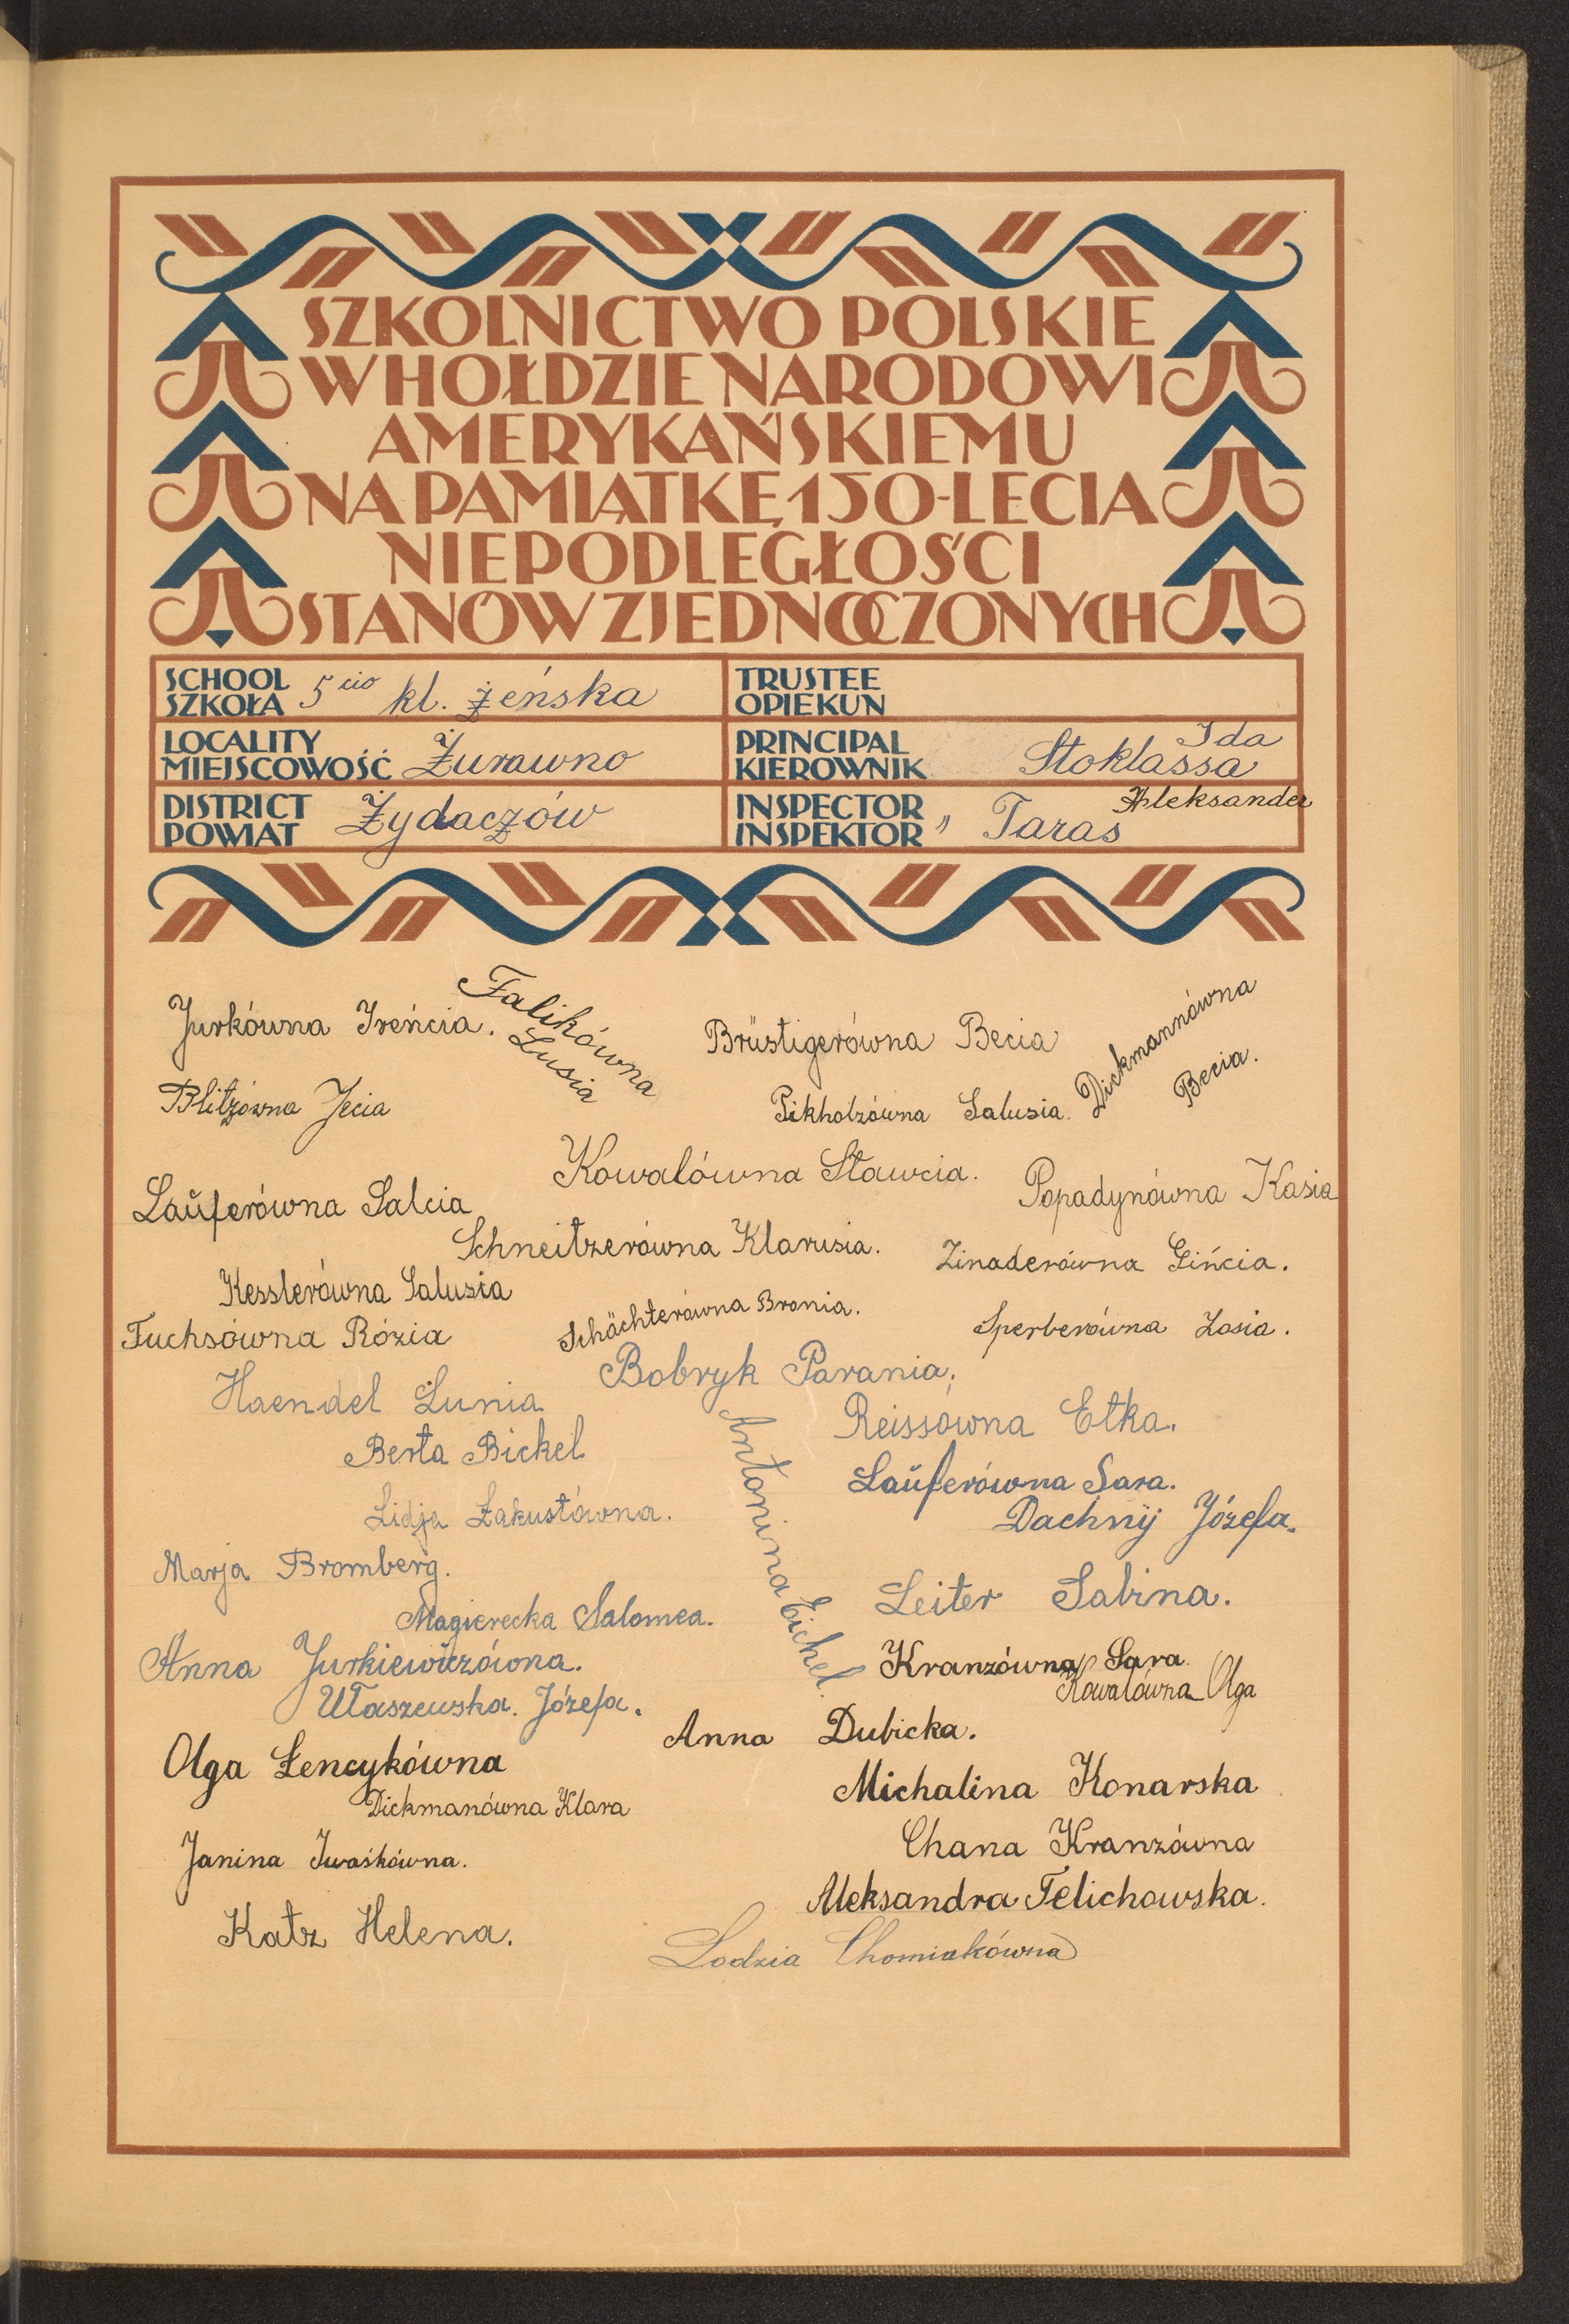 SZKOLNICTWO POLSKIE
W HOŁDZIE NARODOWI
AMERYKAŃSKIEMU
NA PAMIĄTKĘ 150-LECIA
NIEPODLEGŁOŚCI
STANÓW ZJEDNOCZONYCH
SCHOOL
SZKOŁA 5cio kl. żeńska
TRUSTEE
OPIEKUN
LOCALITY
MIEJSCOWOŚĆ Żurawno
PRINCIPAL
KIEROWNIK Ida Stoklassa
DISTRICT
POWIAT Żydaczów
INSPECTOR
INSPEKTOR " Taras Aleksander
Jurkówna Ireńcia.
Falikówna
Lusia
Brüstigerówna Becia
Dickmannówna
Becia.
Blitzówna Jecia
Pikholzówna Salusia.
Kowalówna Sławcia.
Popadynówna Kasia
Laŭferówna Salcia
Schneitzerówna Klarusia.
Zinaderówna Gińcia.
Kesslerówna Salusia
Schächterówna Bronia.
Sperberówna Zosia.
Fuchsówna Rózia
Bobryk Parania.
Haendel Lunia
Reissówna Etka.
Antonina Eichel.
Berta Bickel
Laŭferówna Sara.
Lidja Łakustówna.
Dachnij Józefa.
Marja Bromberg.
Leiter Sabina.
Magierecka Salomea.
Anna Jurkiewiczówna.
Kranzówna Sara.
Kowalówna Olga
Ułaszewska. Józefa.
Anna Dubicka.
Olga Łencykówna
Michalina Konarska
Dickmanówna Klara
Chana Kranzówna
Janina Iwaśkówna.
Aleksandra Telichowska.
Katz Helena.
Lodzia Chomiakówna